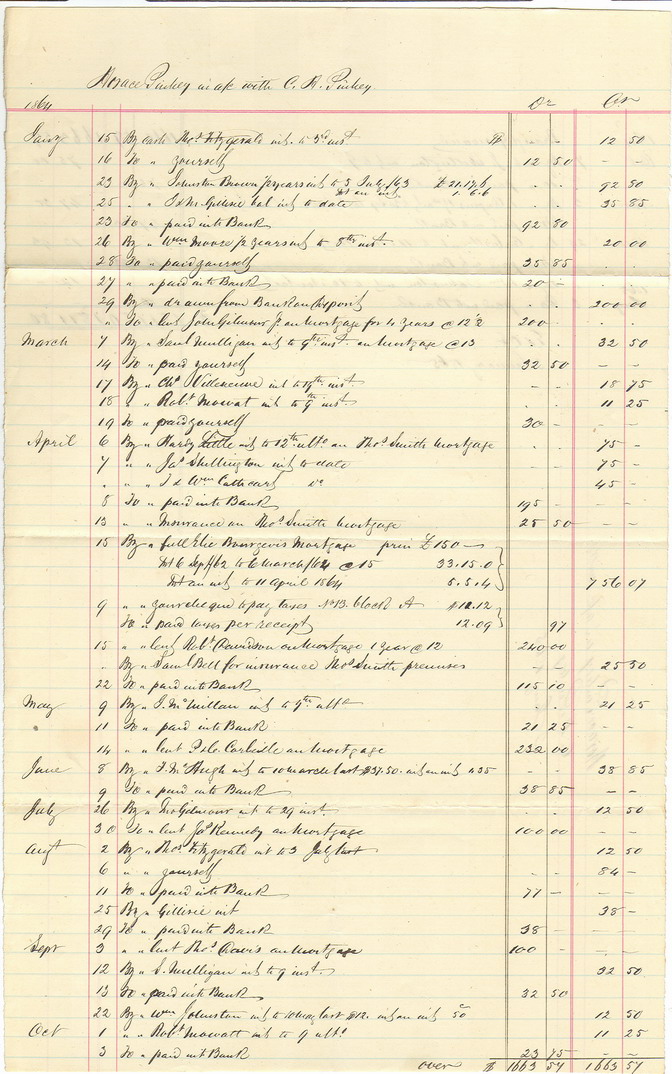 Horace Pinhey in a/c with C. H. Pinhey
1864 Dr Cr
Jany 15 By cash Thos. Fitzgerald int. to 3rd inst $ - 12 50
16 To " yourself 12 50 - -
23 By " Johnston Brown 2 years int to 5 July /63 £21.17.6 . . 92 80
Int on int 1.6.6
25 " " Gillisie bal int to date . . 35 85
23 To " paid into Bank 92 80
26 By " Wm Moore 2 years int to 8th inst. 20 00
28 To " paid yourself 35 85 . .
27 " " paid into Bank 20 - .
29 By " drawn from Bank on deposit . . 200 00
" To " lent John Gilmour on Mortgage for 4 years @ 12½ 200 -
March 7 By " Saml Mulligan int to 9th inst. on Mortgage @ 13 . . 32 50
14 To " paid yourself 32 50 - -
17 By " Chs. Villeneuve int to 19th inst. - - 18 75
18 " " Robt. Mowat int to 9th inst. - - 11 25
19 To " paid yourself 30 -
April 6 By " Hardy Little int to 12th ulto on Thos. Smith Mortgage . . 75 -
7 " " Jas. Shillington int to date - - 75 -
" " " Wm Cathcart Do 45 -
8 To " paid into Bank 195 -
13 " " Insurance on Thos. Smith Mortgage 25 50 - -
15 By " full Elie Bourgeois Mortgage prin £150 -
Int 6 Sep /62 to 6 March /64 @ 15 33.15.0
Int on int to 11 April 1864 5.5.4 756 07
9 " " your cheque to pay taxes No 13. block A $12.12
To " paid taxes per receipt 12.09 97
15 " " lent Robt. Davidson on Mortgage 1 year @ 12 240 00
. By " Saml Bell for insurance Thos. Smith premises - - 25 50
22 To " paid into Bank 115 10 - -
May 9 By " J. McMillan int to 9th ulto . . 21 25
11 To " paid into Bank 21 25 - -
14 " " lent Carlisle on Mortgage 232 00
June 8 By " F. McHugh int to 10 March last $37.50. int on int 1.35 - - 38 85
9 To " paid into Bank 38 85 - -
July 26 By " Gilmour int to 29 inst. . . 12 50
30 To " lent Jas. Kennedy on Mortgage 100 00 - -
Augt 2 By " Thos. Fitzgerald int to 3 July last 12 50
6 " " yourself . . 84 -
11 To " paid into Bank 77 -
25 By " Gillisie int 38 -
29 To " paid into Bank 38 -
Sept 3 " " lent Thos. Davis on Mortgage 100 -
12 By " S. Mulligan int to 9 inst. 32 50
13 To " paid into Bank 32 50
22 By " Wm Johnston int to 10 May last $12. int on int 50 12 50
Oct 1 " " Robt. Mowatt int to 9 ulto. 11 25
3 To " paid int Bank 23 75 - -
over $ 1663 57 1663 57